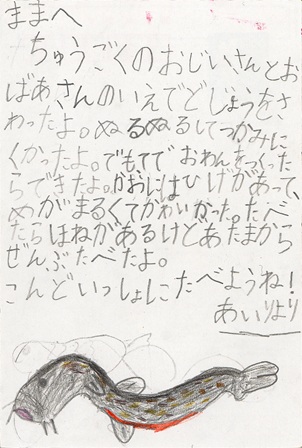 ままへ
ちゅうごくのおじいさんとお
ばあさんのいえでどじょうをさ
わったよ。ぬるぬるしてつかみに
くかったよ。でも、てで おわんをつくった
らできたよ。かおにはひげがあって、
めがまるくてかわいかった。たべ
たらほねがあるけどあたまから
ぜんぶたべたよ。
こんどいっしょにたべようね!
あいりより